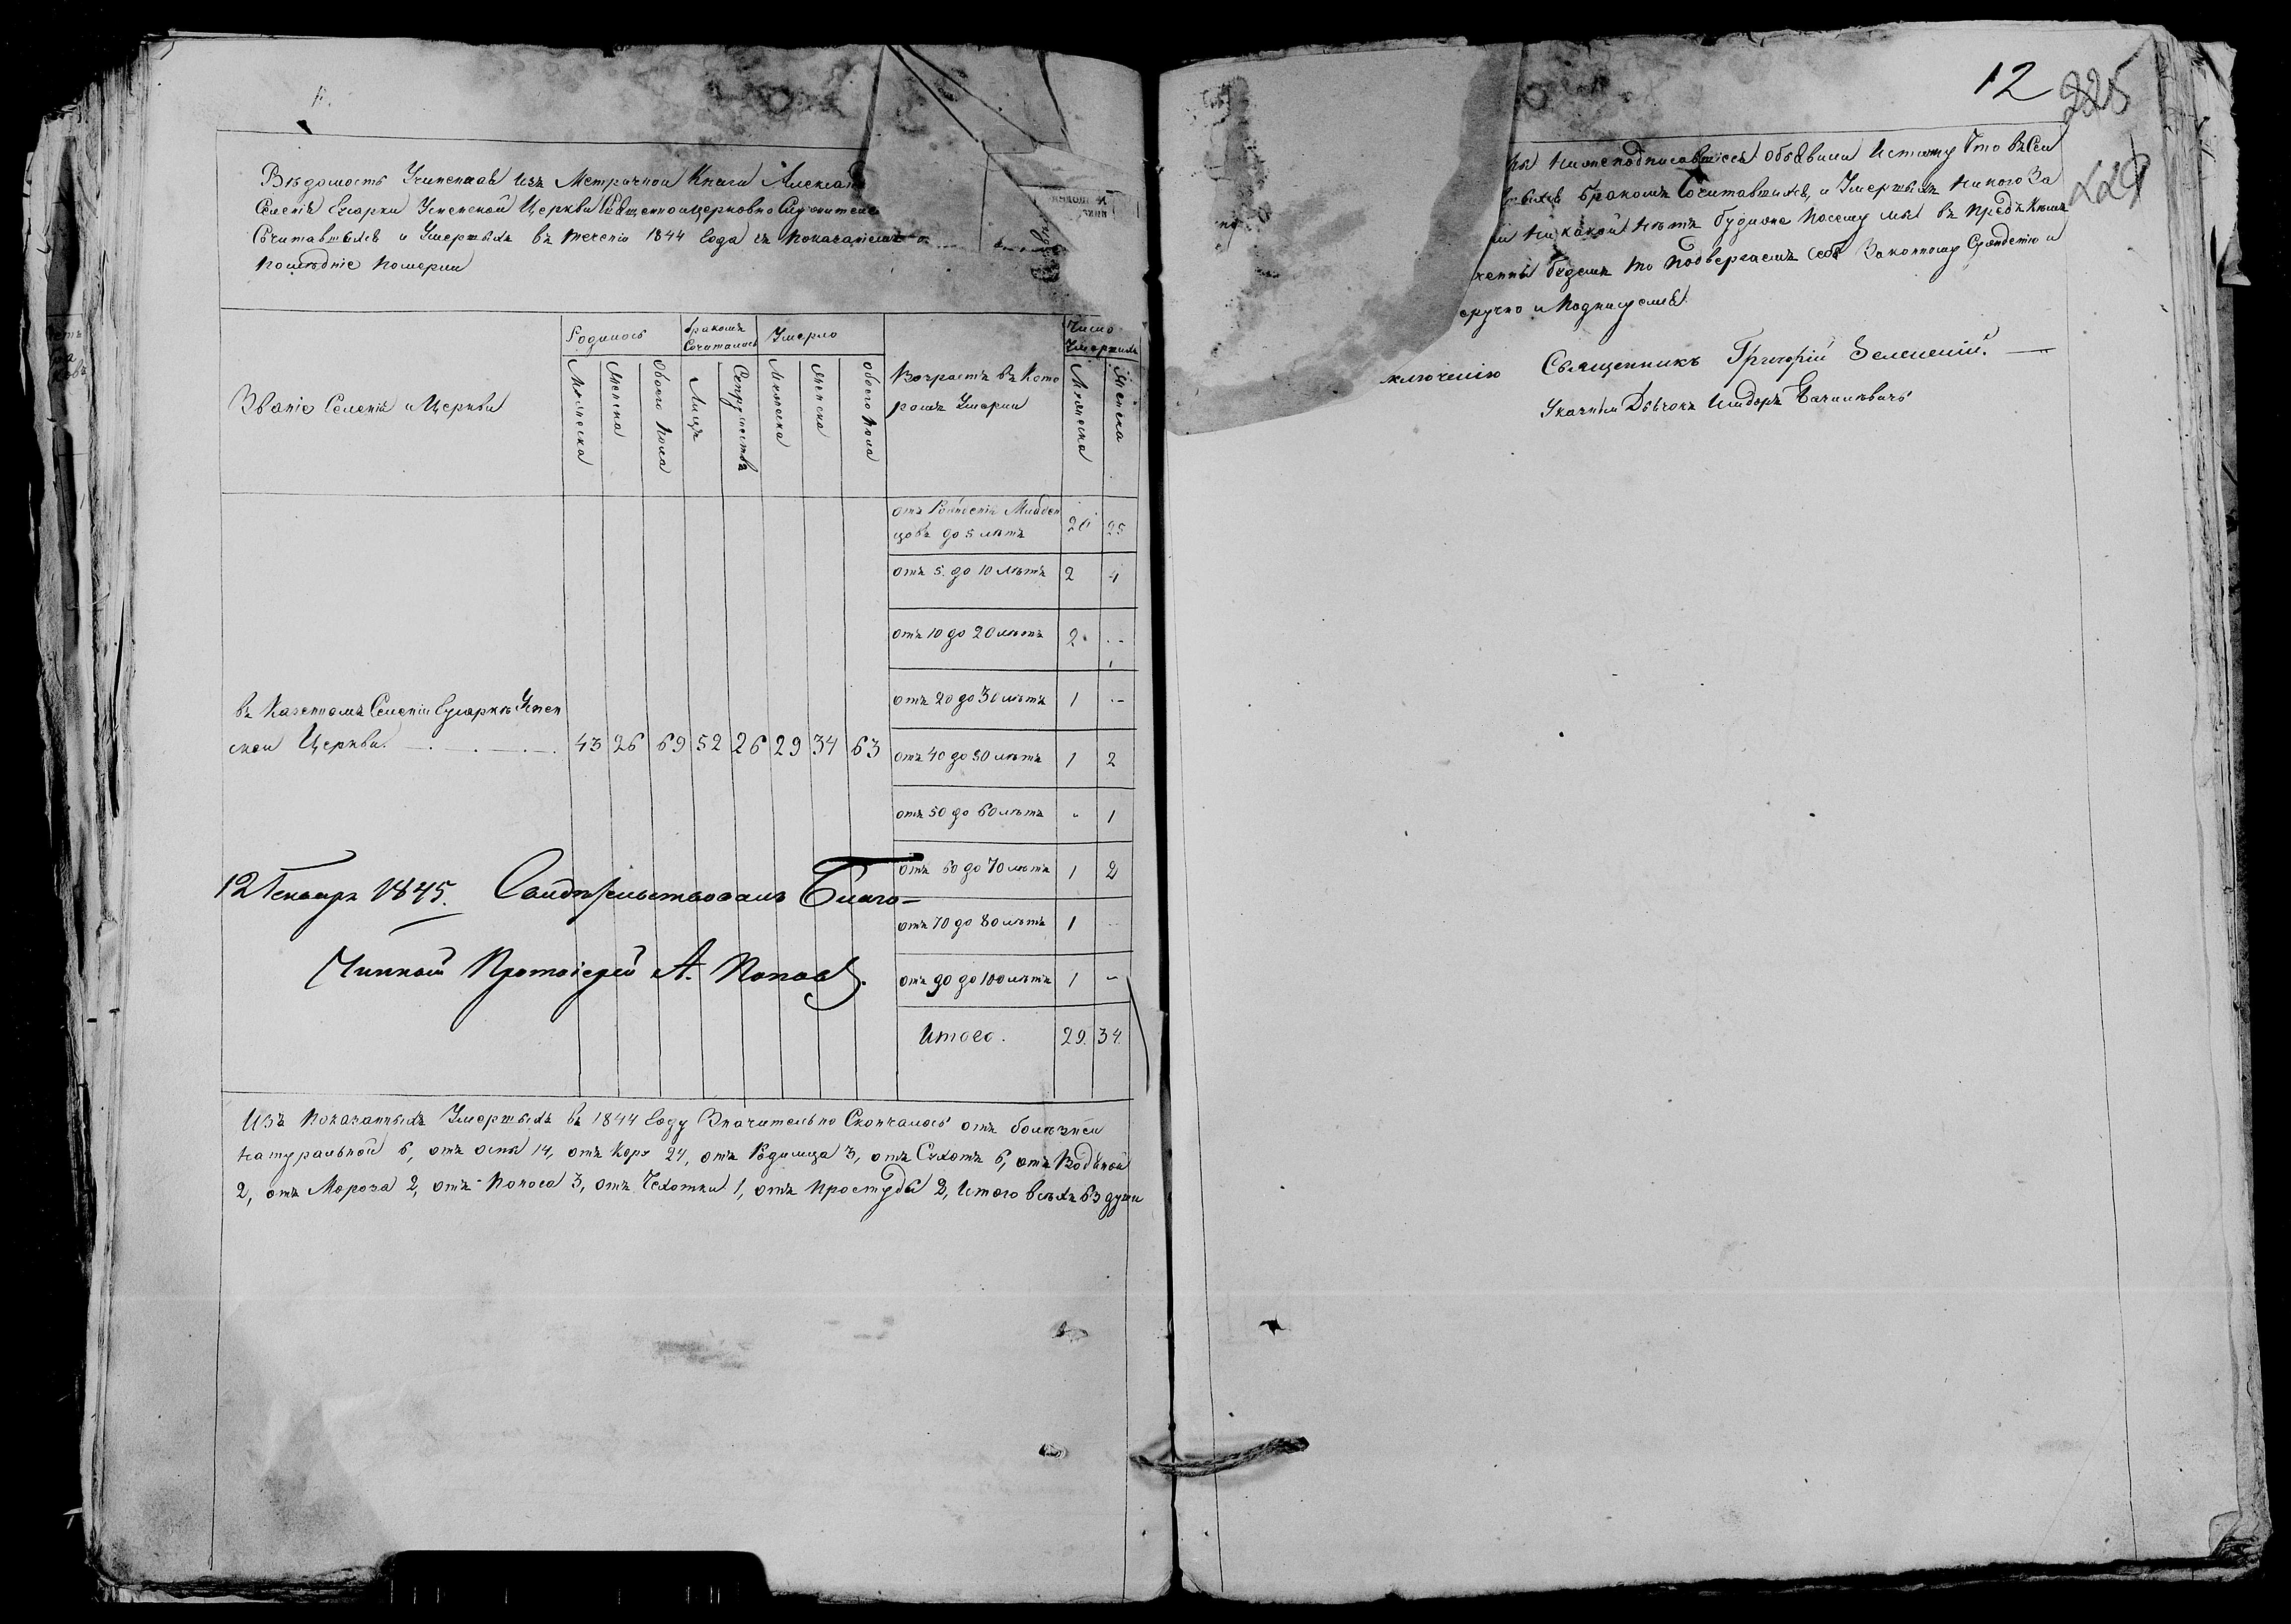 Вѣдомость Учиненная изъ Метричной Книги Александ
Селенія Бугорки Успенской Церкви Священноицерковно Служителе
Сочитавшихся и Умершихъ въ теченіи 1844 Года съ показаніемъ
послѣдніе померли
Званіе Селенія и Церкви
Родилось
Мужеска
Женска
Обоего пола
Бракомъ Сочиталось
Лицъ
Супружествъ
Умерло
Мужеска
Женска
Обоего пола
Возрастъ въ Кото
ромъ Умерли
Число
Умершихъ
Мужеска
Женска
отъ Рожденія Младен
цовъ до 5 лѣтъ 20 25
отъ 5. до 10 лѣтъ 2 4
отъ 10 до 20 лѣтъ 2 -
отъ 20 до 30 лѣтъ 1 -
въ Казенномъ Селеніи Успен
ской Церкви. 43 26 69 52 26 29 34 63
отъ 40 до 50 лѣтъ 1 2
отъ 50 до 60 лѣтъ " 1
отъ 60 до 70 лѣтъ 1 2
отъ 70 до 80 лѣтъ 1 -
отъ 90 до 100 лѣтъ 1 -
Итого. 29. 34.
12 Генваря 1845. Свидѣтельствовалъ Благо-
чинный Протоіерей А. Поповъ.
Изъ показанныхъ Умершихъ въ 1844 Году Значительно Скончалось отъ болѣзней
натуральной 6, отъ оспы 14, отъ Кору 24, отъ Родимца 3, отъ Сухотъ 6, отъ Водяной
2, отъ Мороза 2, отъ Поноса 3, отъ Чехотки 1, отъ простуды 2, Итого всѣхъ 63 души
12 225
нижеподписавшіеся объявили Истинну Что въ Сей
бракомъ Сочитавшихся, и Умершихъ никого За
никакой нѣтъ будиже посему мы въ предъ Кѣмъ
ченны будемъ то подвергаемъ себя Законному Сужденію и
ручно и Подписуемся.
ключенію Священникъ Григорій Зеленскій.
Указный Дьячокъ